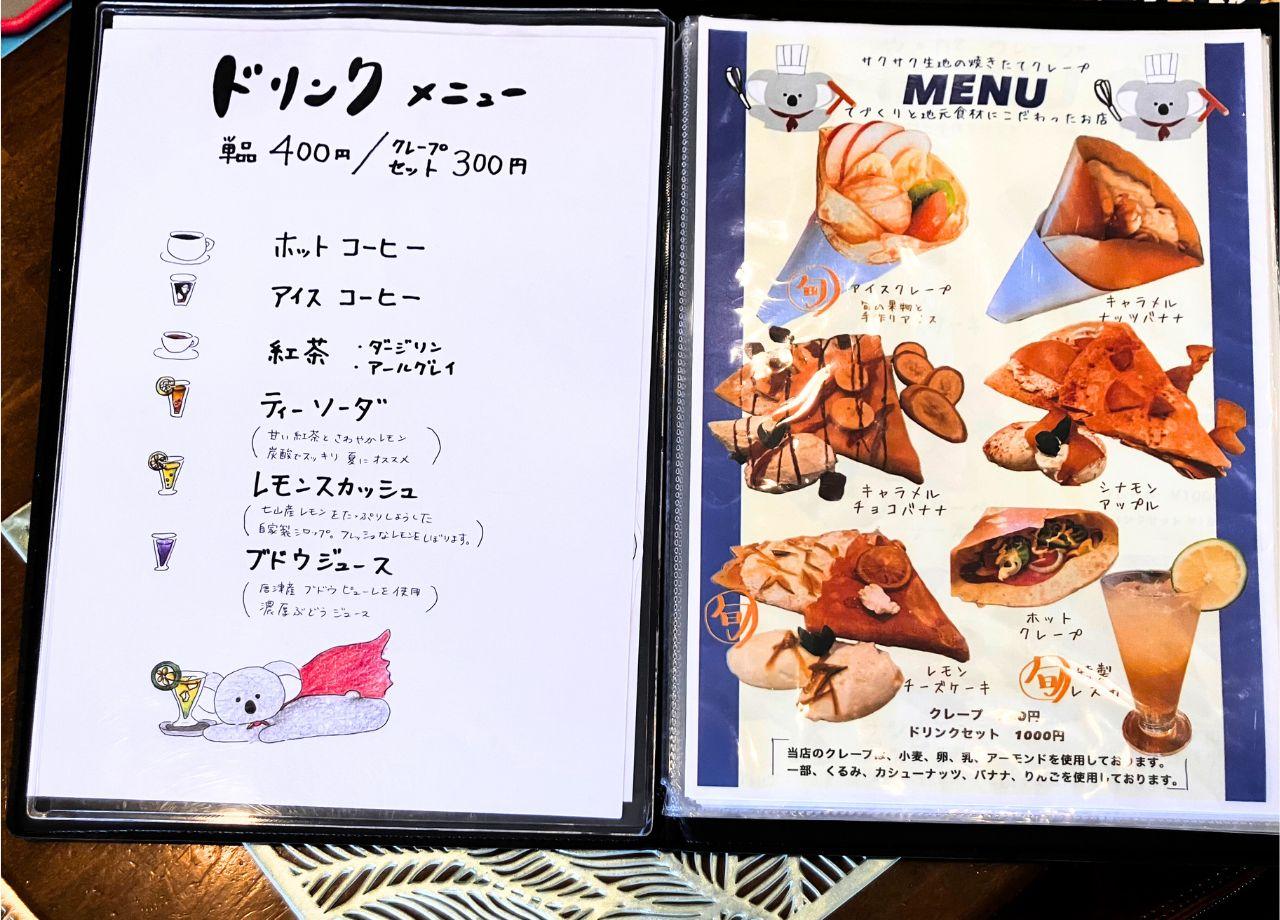 ドリンク メニュー
単品 400円/クレープセット 300円
ホット コーヒー
アイス コーヒー
紅茶 ・ダージリン
・アールグレイ
ティーソーダ
(甘い紅茶とさわやかレモン
炭酸でスッキリ 夏にオススメ)
レモンスカッシュ
(七山産レモンをたっぷりしようした
自家製シロップ。フレッシュなレモンをしぼります。)
ブドウジュース
(唐津産 ブドウピューレを使用
濃厚ぶどうジュース)
サクサク生地の焼きたてクレープ
MENU
てづくりと地元食材にこだわったお店
旬 アイスクレープ
旬の果物と
手作りアイス
キャラメル
ナッツバナナ
キャラメル
チョコバナナ
シナモン
アップル
旬
レモン
チーズケーキ
ホット
クレープ
旬 特製
レスカ
クレープ 円
ドリンクセット 1000円
当店のクレープは、小麦、卵、乳、アーモンドを使用しております。
一部、くるみ、カシューナッツ、バナナ、りんごを使用しております。